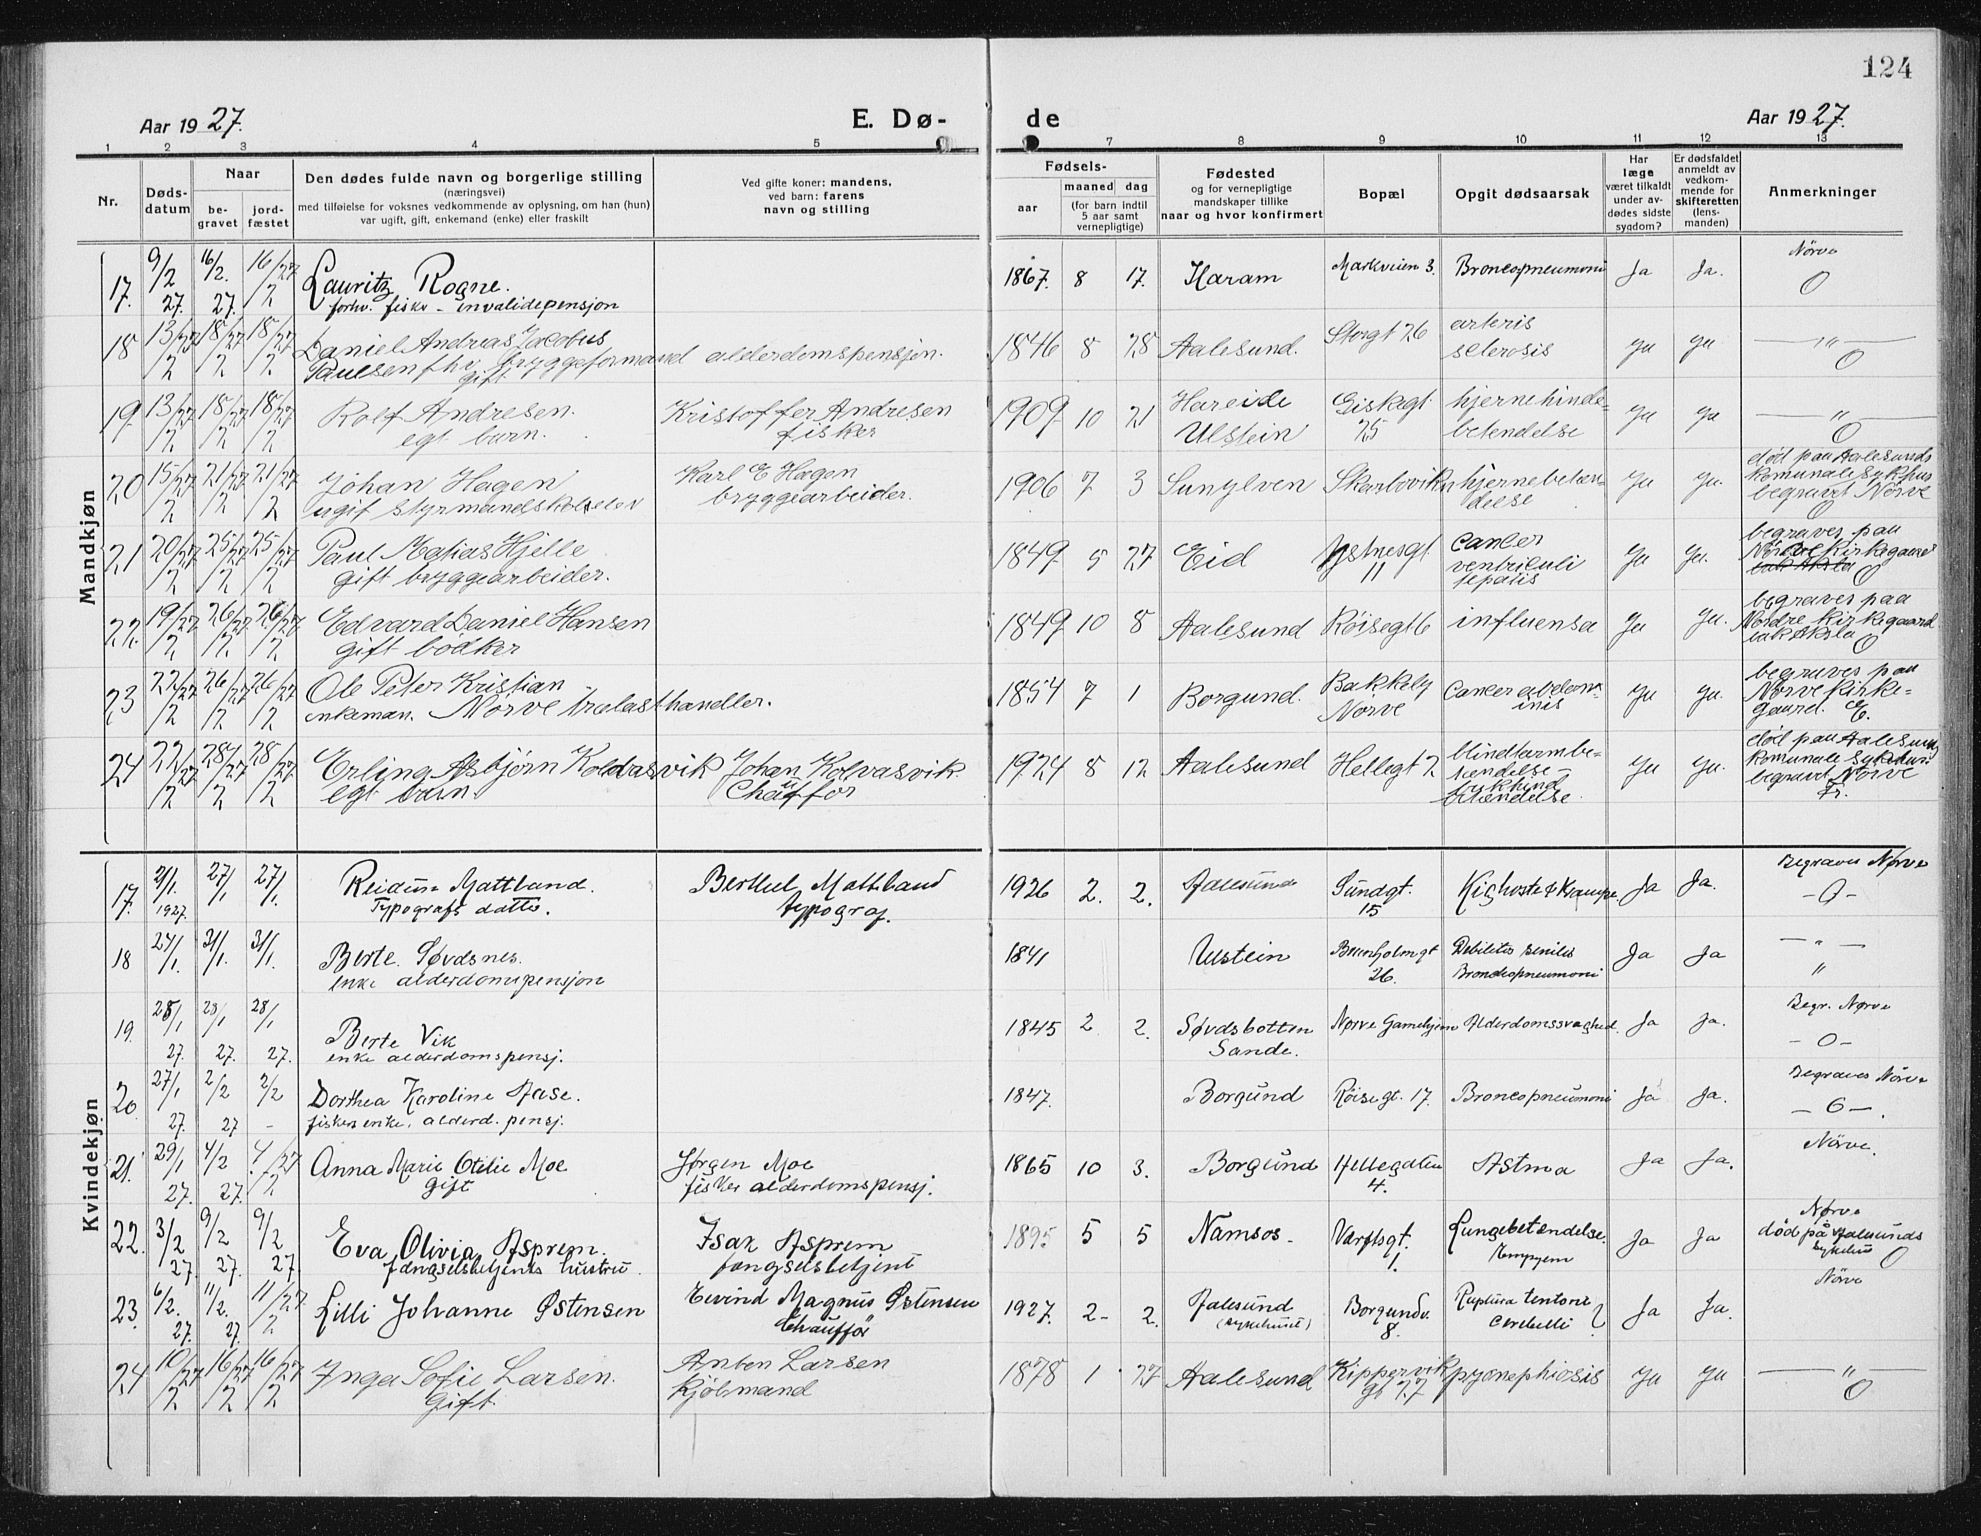 124
Aar 1927.
E. Dø-
de
Aar 1927.
1 2 3 4 5 7 8 9 10 11 12 13
Nr.
Døds-
datum
Naar
be-
gravet
jord-
fæstet
Den dødes fulde navn og borgerlige stilling
(næringsvei)
med tilføielse for voksnes vedkommende av oplysning, om han (hun)
var ugift, gift, enkemand (enke) eller fraskilt
Ved gifte koner: mandens,
ved barn: farens
navn og stilling
Fødsels-
aar
maaned dag
(for barn indtil
5 aar samt
vernepligtige)
Fødested
og for vernepligtige
mandskaper tillike
naar og hvor konfirmert
Bopæl
Opgit dødsaarsak
Har
læge
været tilkaldt
under av-
dødes sidste
sygdom?
Er dødsfaldet
anmeldt av
vedkom-
mende for
skifteretten
(lens-
manden)
Anmerkninger
Mandkjøn
17. 9/2 27. 16/2. 27. 16/27 2 Lauritz Rogne. 1867. 8 17. Haram Markveien 3. Broncopneumoni Ja Ja. Nörve
forhv. fisker - invalidepensjon O
18 13/27 2 18/27 2 18/27 2 Daniel Andreas Jacobus
Paulsen fhv. bryggeformand alderdomspensjon. 1846 8 28 Aalesund. Storgt 26 arteris
sclerosis Ja Ja — " — O
gift
19. 13/27 2 18/27 2 18/27 2 Rolf Andresen. Kristoffer Andresen 1909 10 21 Hareide Giskegt hjernehinde-
egt barn. fisker Ulstein 25 betendelse Ja Ja — " — O
20 15/27 2 21/27 2 21/27 2 Johan Hagen Karl E Hagen 1906 7 3 Sunylven hjernebeten-
delse Ja Ja. død paa Aalesunds
ugift styrmandskoleelev bryggearbeider. komunale sykhus
begravet Nörve
O
21 20/27 2 25/27 2 25/27 2 Paul Matias Hjelle 1849 5 27 Eid 11 Cancer
gift bryggearbeider. ventriculi Ja Ja. begraves paa
O
22. 19/27 2 26/27 2 26/27 2 Edvard Daniel Hansen 1849 10 8 Aalesund Röisegt 6 influensa Ja Ja. begraves paa
gift bödker Nördre kirkegaard
O
23 22/27 2 26/27 2 26/27 2 Ole Peter Kristian 1854 7 1 Borgund. Bakkely Cancer abdom-
enkeman. Nörve trælasthandler. Nörve inis Ja Ja. begraves paa
Nörve kirke-
gaard.
24 22/27 2 28/27 2 28/27 2 Erling Asbjörn Kolvasvik Johan Kolvasvik 1924 8 12 Aalesund Hellegt 2 blindtarmbe-
egt barn Chauffor tændelse
bukhind
betændelse Ja Ja. død paa Aalesund
komunale Sykehus
begravet Nörve
Fr.
Kvindekjøn
17. 21/1. 1927. 27/1 27/1. Reidun Mattland. Berthel Mattland 1926 2. 2. Aalesund Sundgt. Kighoste & Krampe Ja Ja. Begraves Nørve
Typografs datter. typograf. 15 -O-
18 24/1. 31/1. 31/1. Berte Søvdsnes. 1841 Ulstein Bernholmgt Debilitas senilis Ja Ja — " —
enke alderdomspensjon 26. Broncopneumoni "
19. 28/1 27. 28/1 27. 28/1 27. Berte Vik 1845 2 2. Søvdsbotten Nørve Gamlehjem Alderdomssvaghed. Ja Ja. Begr. Nørve
enke alderdomspensj. Sande. -O-
20. 27/1 27. 2/2 27 2/2 - Dorthea Karoline Aase. 1847. Borgund Röisegt. 17. Broncopneumoni Ja Ja. Begraves Nörve
fiskerenke. alderd. pensj. -6-.
21. 29/1 27. 4/2 27. 4/27 2 Anna Marie Otilie Moe Jørgen Moe 1865 10 3. Borgund Hellegaten Astma Ja Ja. Nörve.
Gift fisker alderdomspensj. 4.
22. 3/2 27. 9/2 27. 9/2 27. Eva Olivia Asprem. Isak Asprem 1895 5 5 Namsos - Varftsgt. Lungebetændelse. Ja Ja Nørve
fængselsbetjents hustru. fængselsbetjent 1. Empyem død på Aalesunds
sykehus O
23. 6/2. 27. 11/2. 27. 11/27. 2 Lilli Johanne Østensen Eivind Magnus Østensen 1927. 2- 2. Aalesund Borgundv. Ruptura tentorii Ja Ja. Nörve
Chauffør (sykehuset) 8. cerebelli
24 10/27 2 16/27 2 16/27 2 Inga Sofie Larsen. Anton Larsen 1878 1 27 Aalesund Kippervik Ja Ja — " —
Gift. Kjöbmand gt 27 O